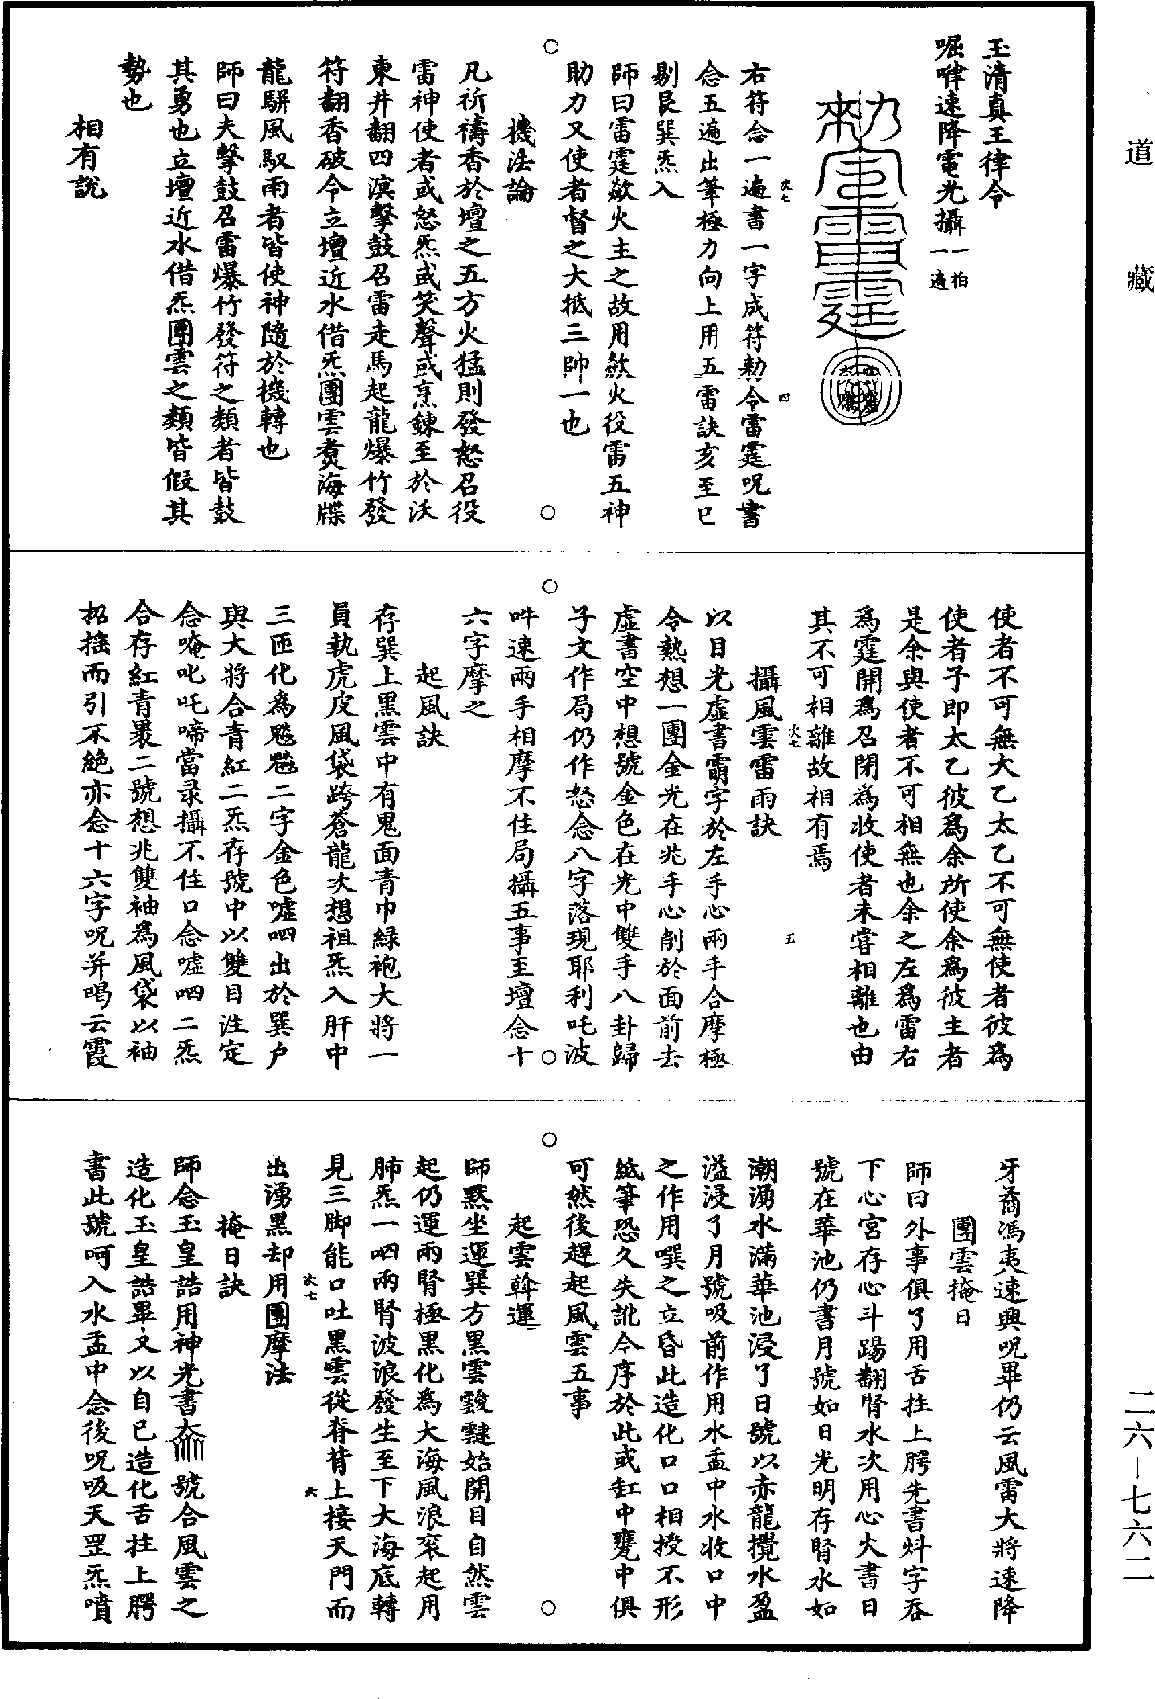 道藏
玉清真王律令
啒㖀速降電光攝一拍一遍
勑
右符念一遍書一字成符勑令雷霆呪書
念五遍出筆極力向上用五雷訣亥至巳
剔艮巽炁入
師曰雷霆歘火主之故用歘火役雷五神
助力又使者督之大抵三帥一也
機法論
凡祈禱香於壇之五方火猛則發怒召役
雷神使者或怒炁或笑聲或烹鍊至於沃
東井翻四溟擊鼓召雷走馬起龍爆竹發
符翻香破令立壇近水借炁團雲煑海牒
龍駢風馭雨者皆使神隨於機轉也
師曰夫擊鼓召雷爆竹發符之類者皆鼓
其勇也立壇近水借炁團雲之類皆假其
勢也
相有說
使者不可無太乙太乙不可無使者彼爲
使者予即太乙彼爲余所使余爲彼主者
是余與使者不可相無也余之左爲雷右
爲霆開爲召閉爲收使者未嘗相離也由
其不可相離故相有焉
攝風雲雷雨訣
以日光虛書霸字於左手心兩手合摩極
令熱想一團金光在兆手心削於面前去
虛書空中想號金色在光中雙手八卦歸
子文作局仍作怒念八字落現耶利吒波
吽速兩手相摩不住局攝五事至壇念十
六字摩之
起風訣
存巽上黑雲中有鬼面青巾綠袍大將一
員執虎皮風袋跨蒼龍次想祖炁入肝中
三匝化爲二字金色噓呬出於巽户
與大將合青紅二炁存號中以雙目注定
念唵叱吒啼當录攝不住口念噓呬二炁
合存紅青裹二號想兆雙袖爲風袋以袖
招搖而引不絶亦念十六字呪并喝云霞
牙裔馮夷速興呪畢仍云風雷大將速降
團雲掩日
師曰外事俱了用舌拄上腭先書炓字吞
下心宮存心斗踢翻腎水次用心火書日
號在華池仍書月號如日光明存腎水如
潮湧水滿華池浸了日號以赤龍攪水盈
溢浸了月號吸前作用水盂中水收口中
之作用噀之立昏此造化口口相授不形
紙筆恐久失訛今序於此或缸中甕中俱
可然後趕起風雲五事
起雲斡運
師黙坐運巽方黑雲靉靆始開目自然雲
起仍運兩腎極黑化爲大海風浪滚起用
肺炁一呬兩腎波浪發生至下大海底轉
見三脚能口吐黑雲從脊背上接天門而
出湧黑却用團摩法
掩日訣
師念玉皇誥用神光書號合風雲之
造化玉皇誥畢又以自己造化舌拄上腭
書此號呵入水盂中念後呪吸天罡炁噴
二六—七六二